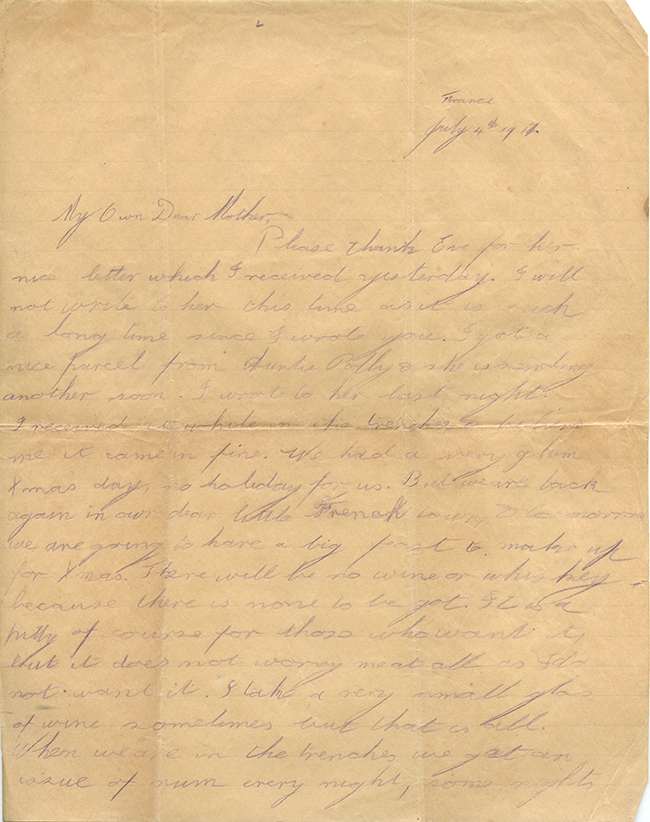 France
July 4th 191
My Own Dear Mother,
Please thank Eve for her
nice letter which I received yesterday. I will
not write to her this time as it is such
a long time since I wrote you. I got a
nice parcel from Auntie Polly & she is sending
another soon. I wrote to her last night.
I received it while in the trenches & believe
me it came in fine. We had a very glum
Xmas day, no holiday for us. But we are back
again in our dear little French town, & to morrow
we are going to have a big feast to make up
for Xmas. There will be no wine or whiskey
because there is none to be got. It is a
pitty of course for those who want it,
but it does not worry me at all as I do
not want it. I take a very small glas
of wine sometimes but that is all.
When we are in the trenches we get an
issue of rum every night, some nights